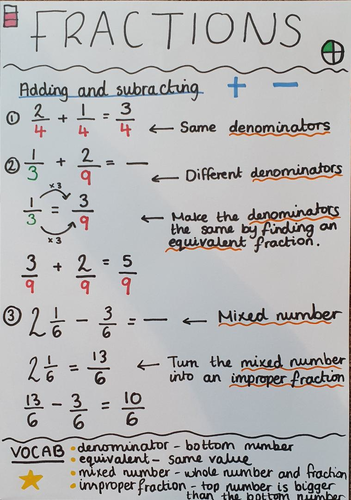 FRACTIONS
Adding and subracting + −
① 2/4 + 1/4 = 3/4 ← Same denominators
② 1/3 + 2/9 = — ← Different denominators
×3
1/3 = 3/9 ← Make the denominators
the same by finding an
equivalent fraction.
×3
3/9 + 2/9 = 5/9
③ 2 1/6 − 3/6 = — ← Mixed number
2 1/6 = 13/6 ← Turn the mixed number
into an improper fraction
13/6 − 3/6 = 10/6
VOCAB • denominator - bottom number
• equivalent - same value
• mixed number - whole number and fraction
• improper fraction - top number is bigger
than the bottom number